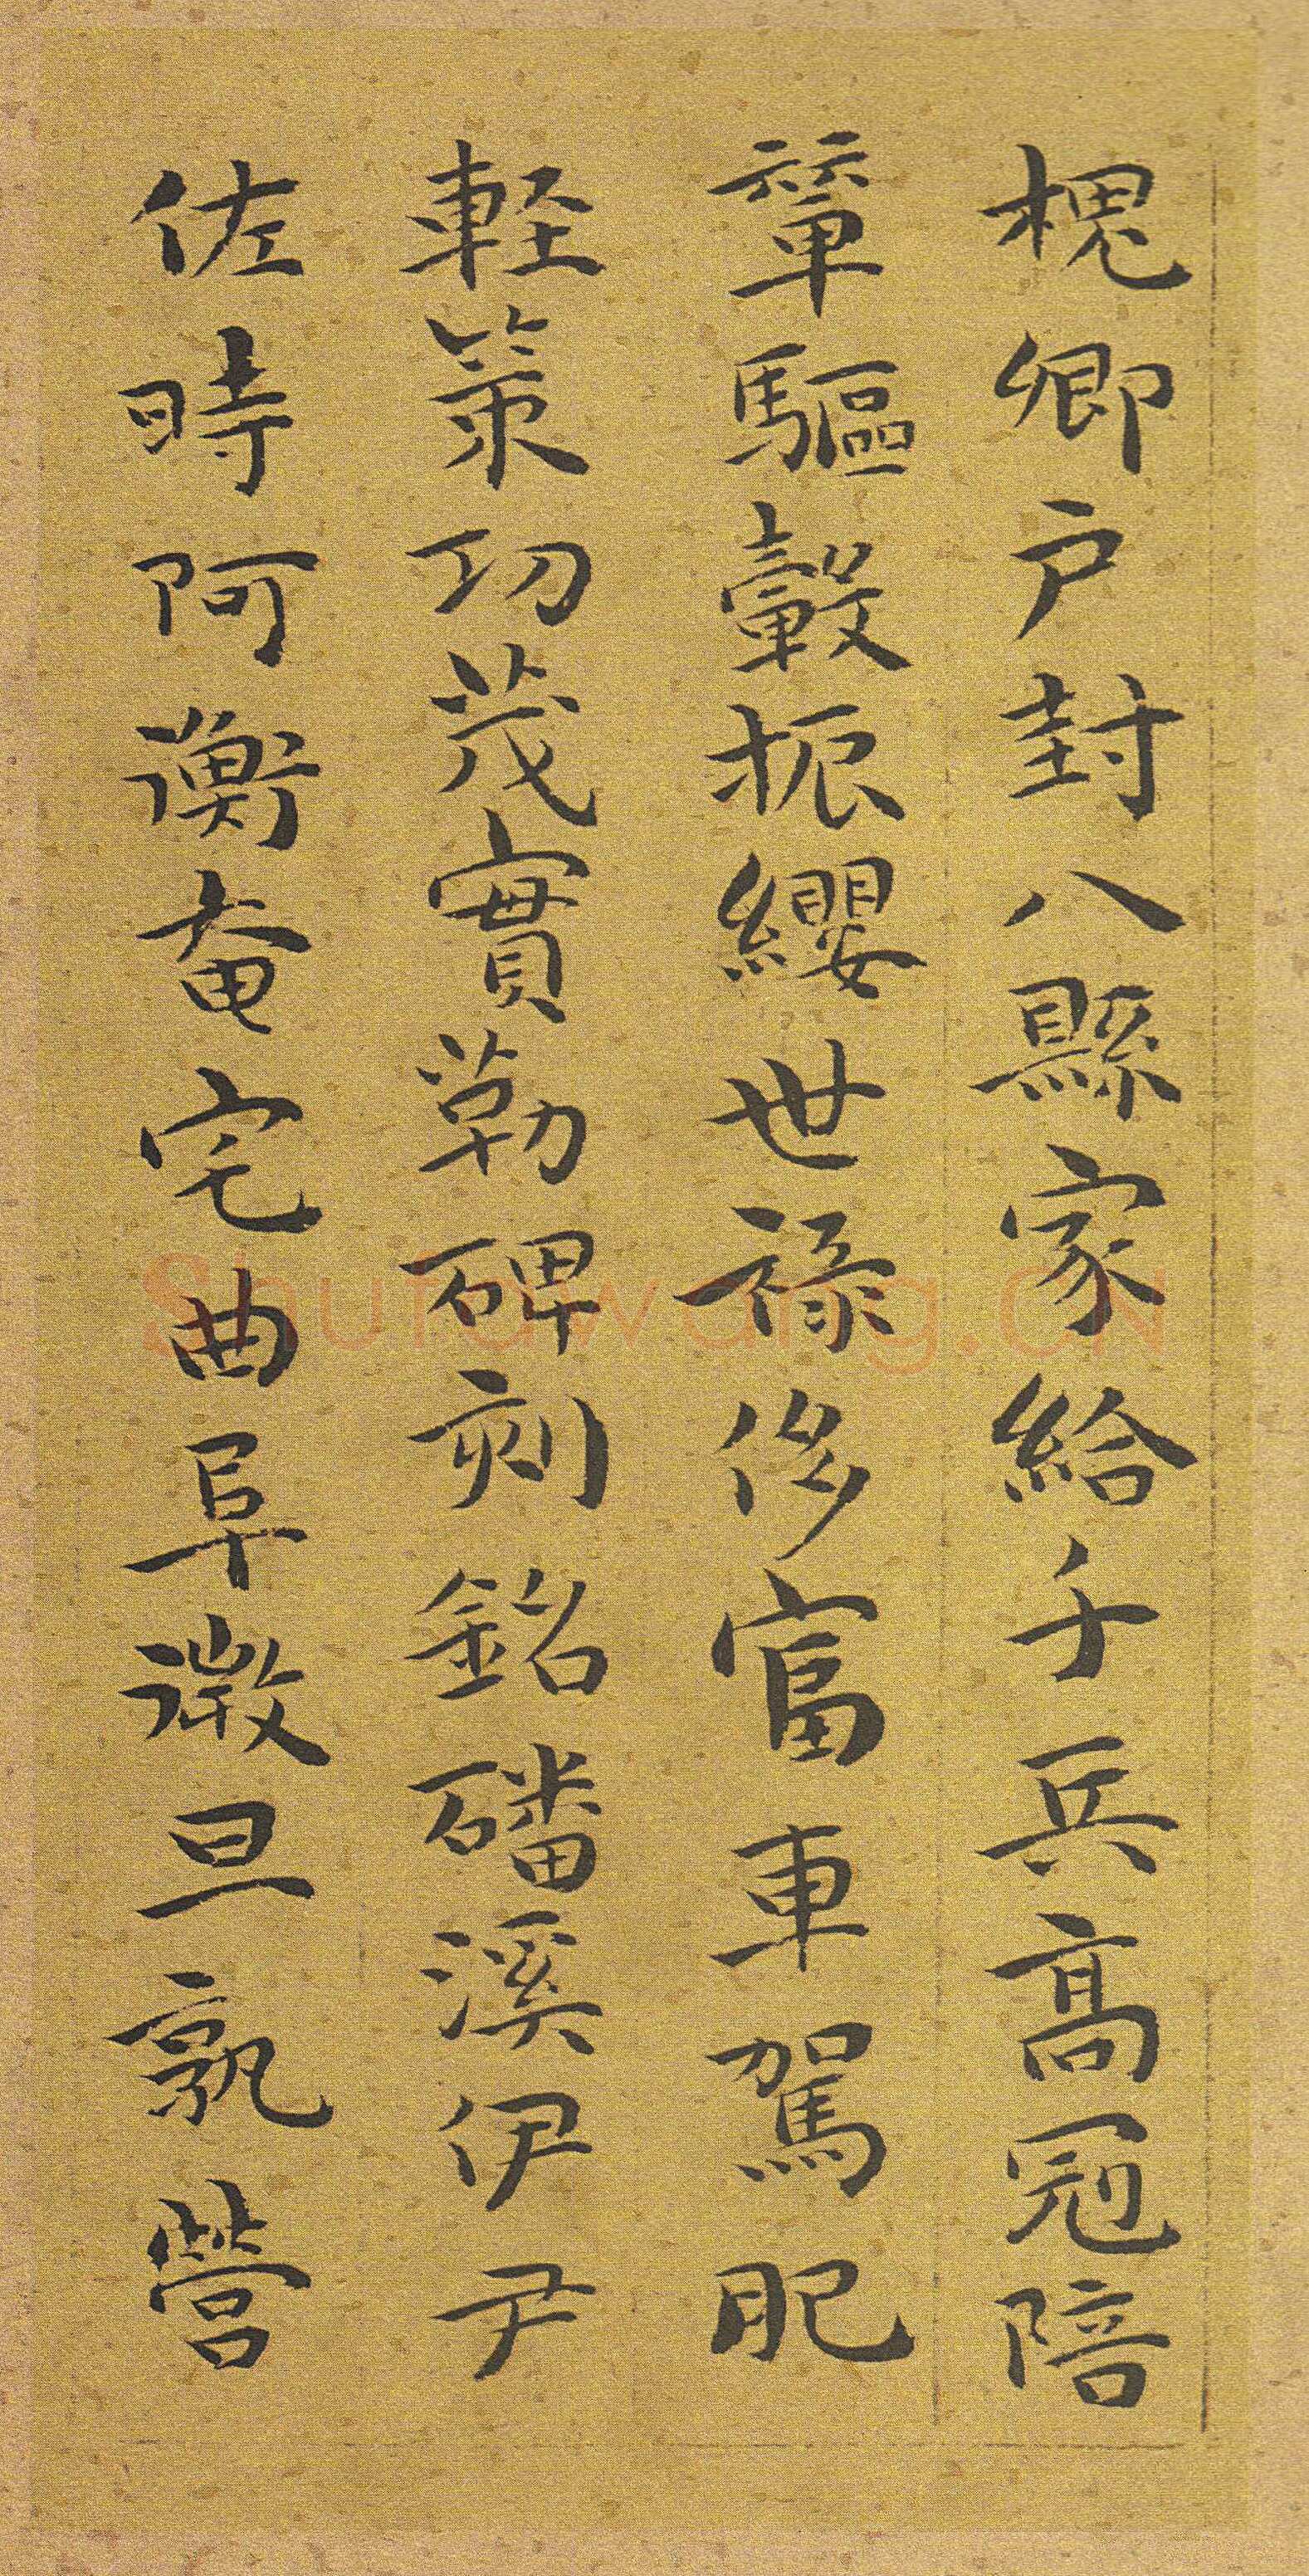 槐卿户封八縣家給千兵高冠陪
輦驅轂振纓世祿侈富車駕肥
輕策功茂實勒碑刻銘磻溪伊尹
佐時阿衡奄宅曲阜微旦孰營
Shufawang.CN